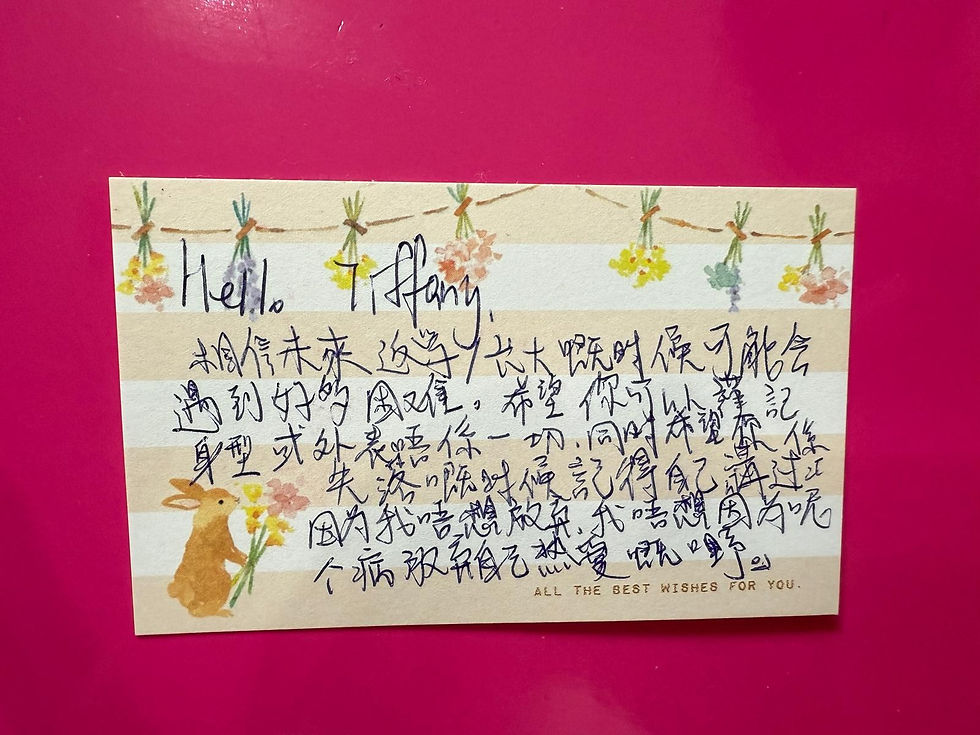 Hello Tiffany,
相信未來返學/長大嘅时候可能会
遇到好多困难。希望你可以謹記
身型或外表唔係一切,同时希望你係
失落嘅时候記得自己講过:
因为我唔想放弃,我唔想因为呢
个病放弃自己热愛嘅嘢。」
ALL THE BEST WISHES FOR YOU.